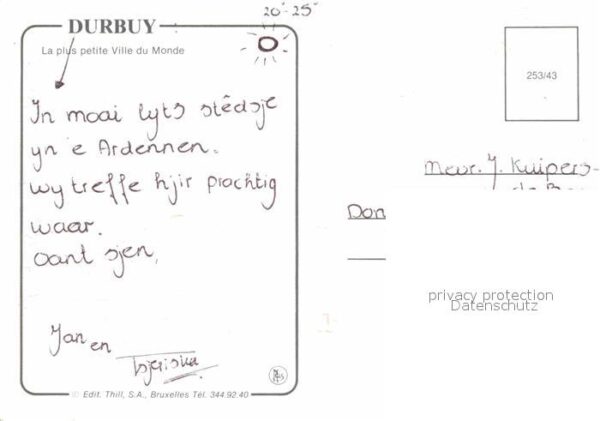 20°-25°
DURBUY
La plus petite Ville du Monde
In moai lyts stêdsje
yn e Ardennen.
wy treffe hjir prachtig
waar.
Oant sjen,
Jan en
253/43
Mevr. J. Kuipers-
Don
privacy protection
Datenschutz
© Edit. Thill, S.A., Bruxelles Tél. 344 92 40